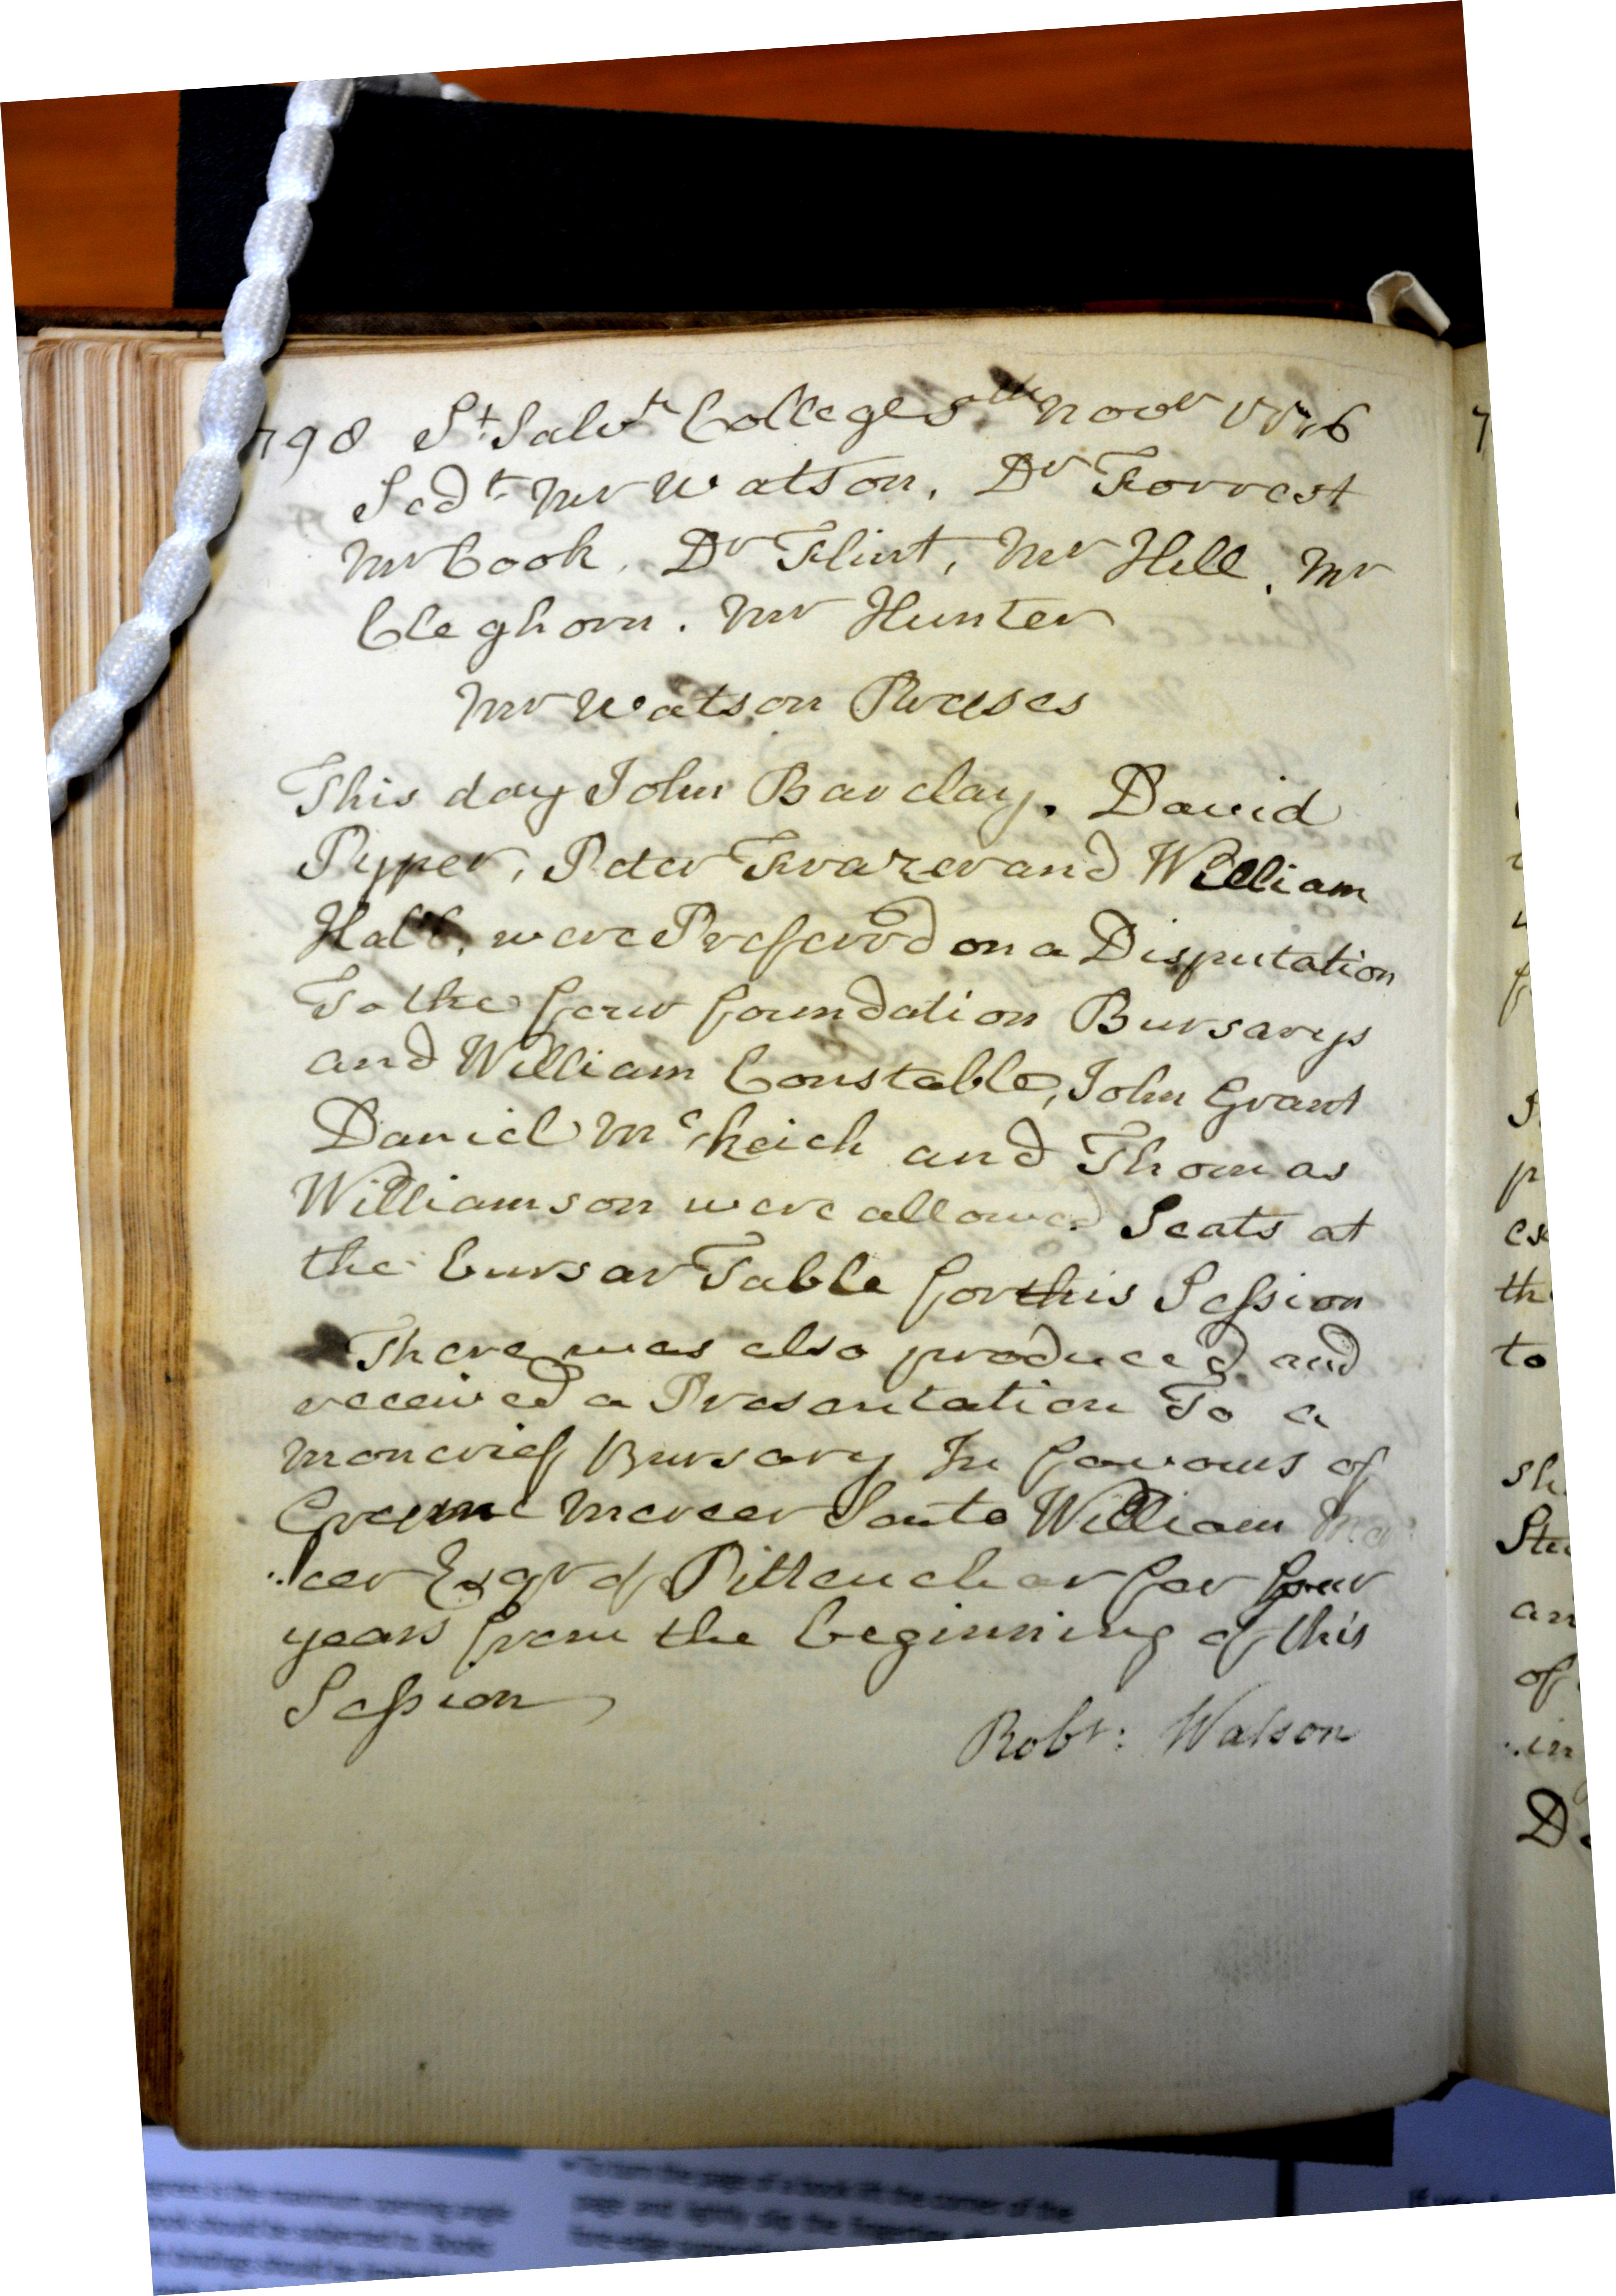 798 St. Salvrs College 8th Novr 1776
Sedt. Mr Watson, Dr Forrest
Mr Cook, Dr Flint, Mr Hill, Mr
Cleghorn. Mr Hunter
Mr Watson Preses
This day John Barclay, David
Pyper, Peter Frazer and William
Hall, were Preferred on a Disputation
To the four foundation Bursarys
and William Constable, John Grant
Daniel McKeich and Thomas
Williamson were allowed Seats at
the bursar Table for this Session
There was also produced and
received a Presentation To a
Moncrieff Bursary In favours of
Graeme Mercer Son to William Mer
cer Esqr of Pittenchar for four
years from the beginning of this
Session
Robt: Watson
to
of